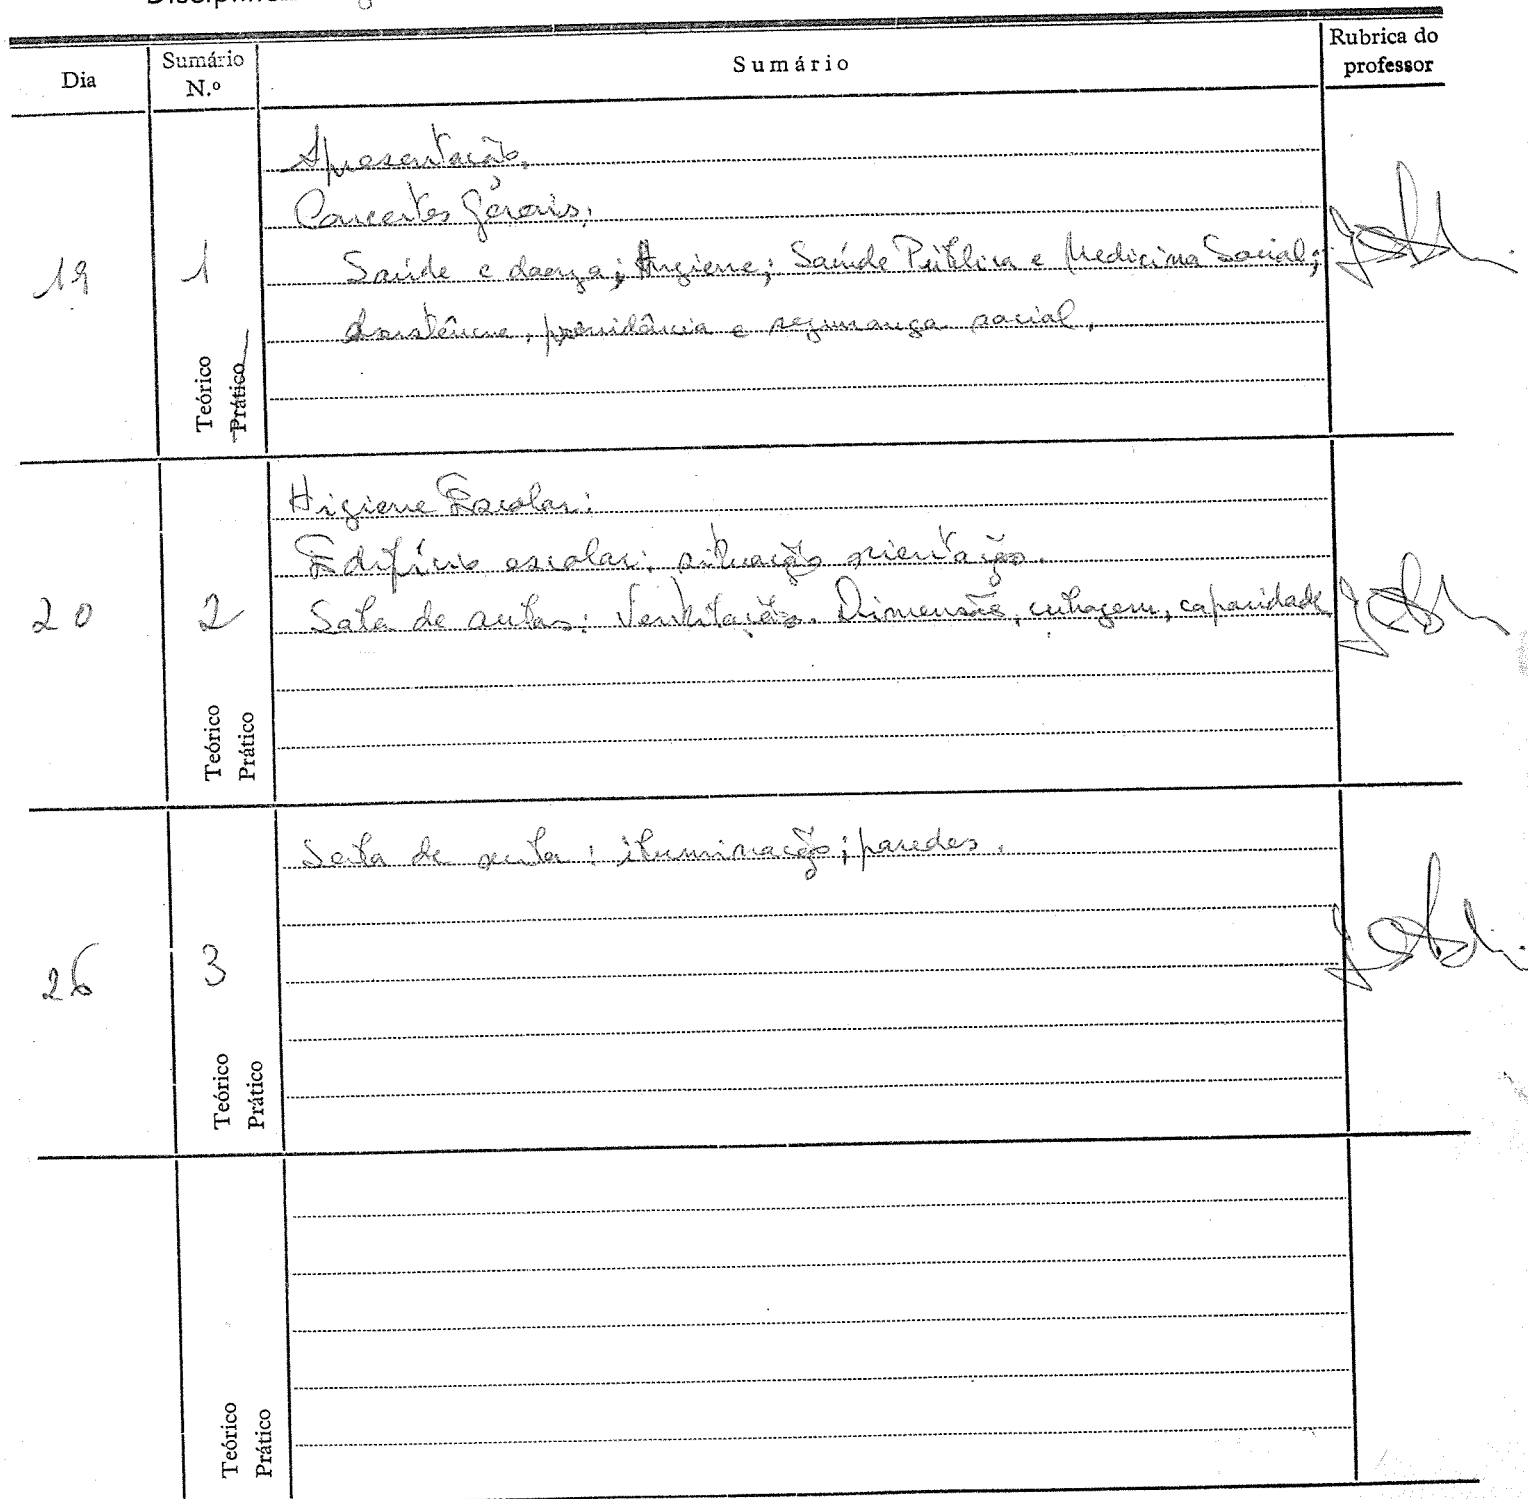 Dia
Sumário N.º
Sumário
Rubrica do professor
Apresentação.
Conceitos Gerais:
19
1
Saúde e doença; Higiene; Saúde Pública e Medicina Social;
Assistência, previdência e segurança social.
Teórico
Prático
Higiene Escolar:
Edifício escolar: situação orientação.
20
2
Sala de aulas: Ventilação. Dimensão, cubagem, capacidade
Teórico
Prático
Sala de aula: iluminação; paredes.
26
3
Teórico
Prático
Teórico
Prático